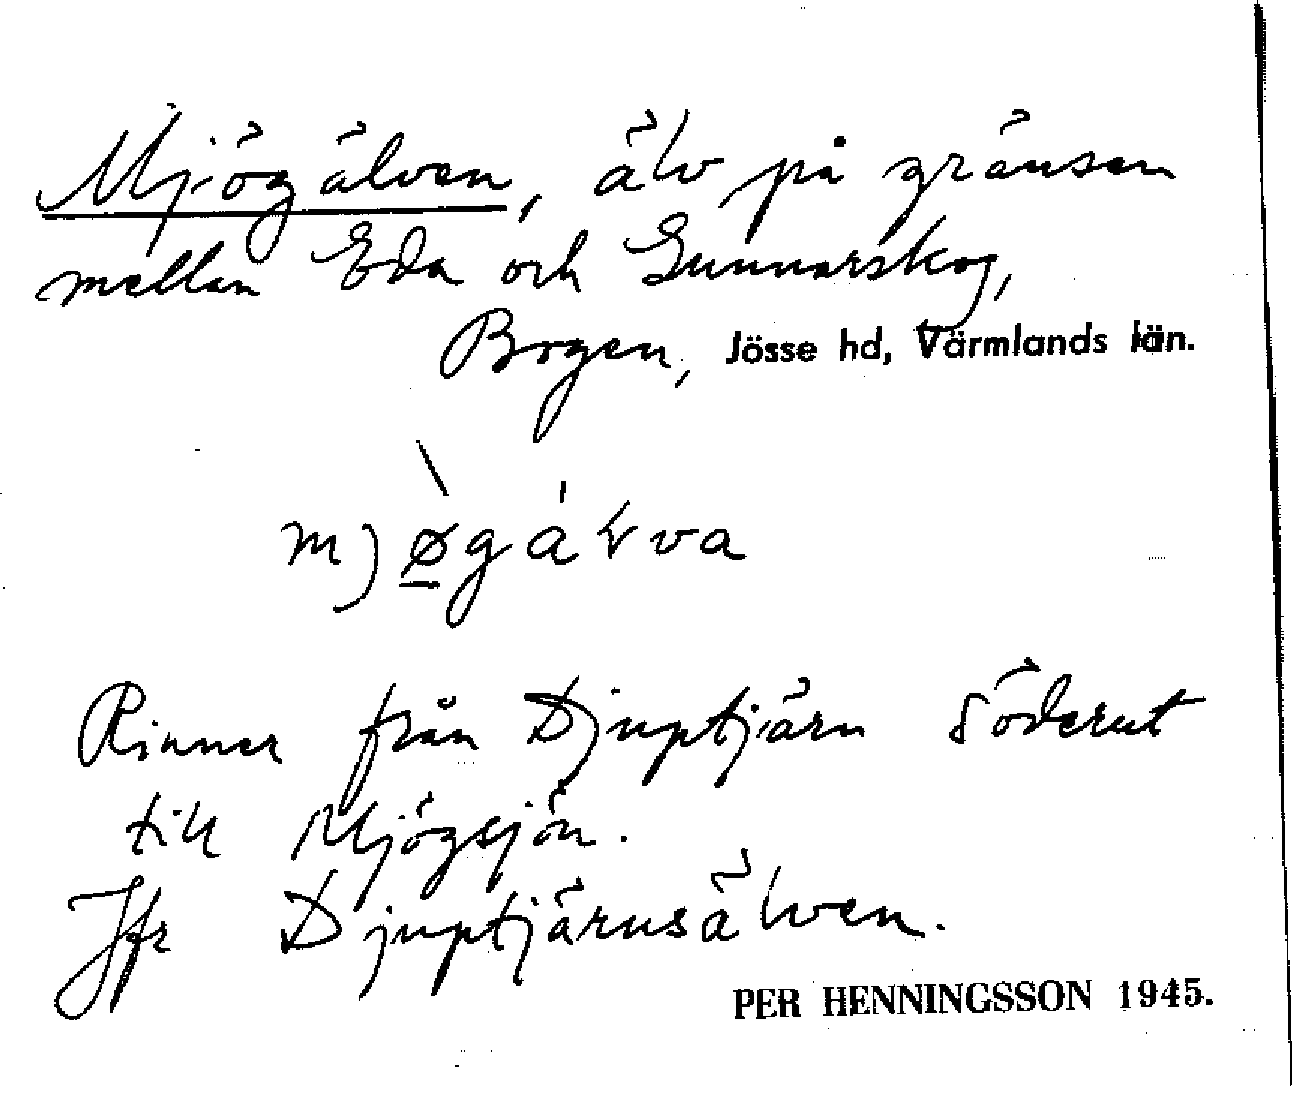 Mjögälven, älv på gränsen
mellan Eda och Gunnarskog,
Bogen, Jösse hd, Värmlands län.
Rinner från Djuptjärn söderut
till Mjögsjön.
Jfr Djuptjärnsälven.
PER HENNINGSSON 1945.